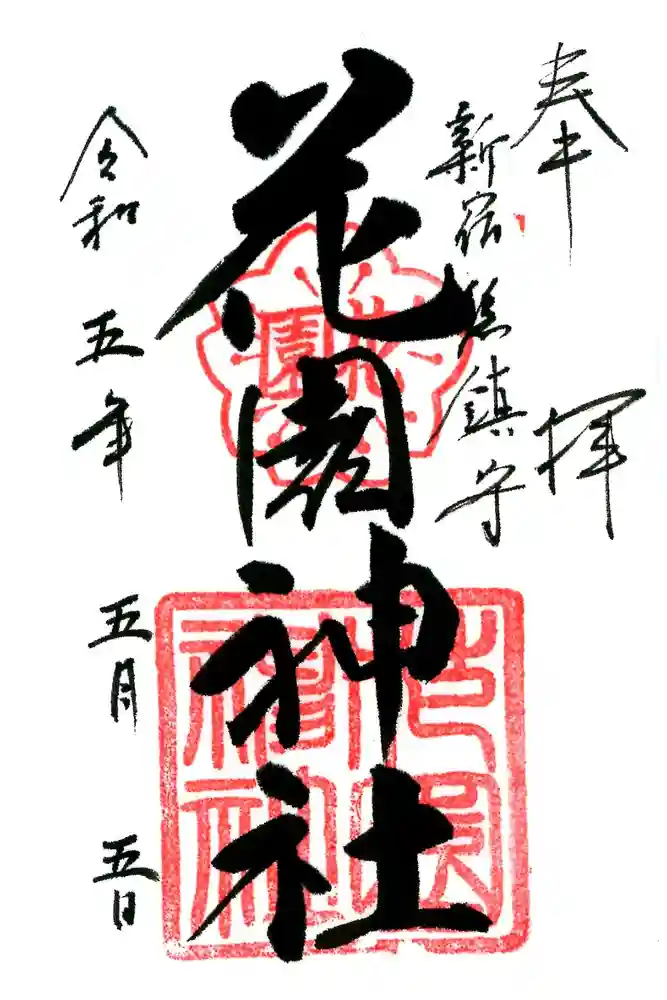 奉拝
新宿総鎮守
花園神社
令和五年五月五日
花園